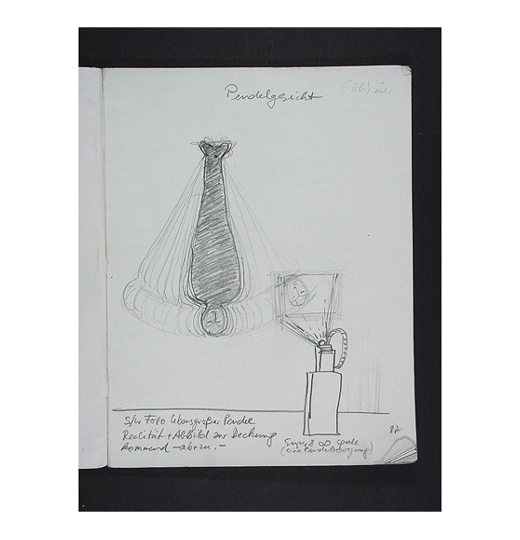 Pendelgesicht
S/W Foto lebensgroßer Pendel
Realität + Abbild zur Deckung
kommend – ab + zu. –
Super 8 ∞ Spule
(eine Pendelbewegung)
87